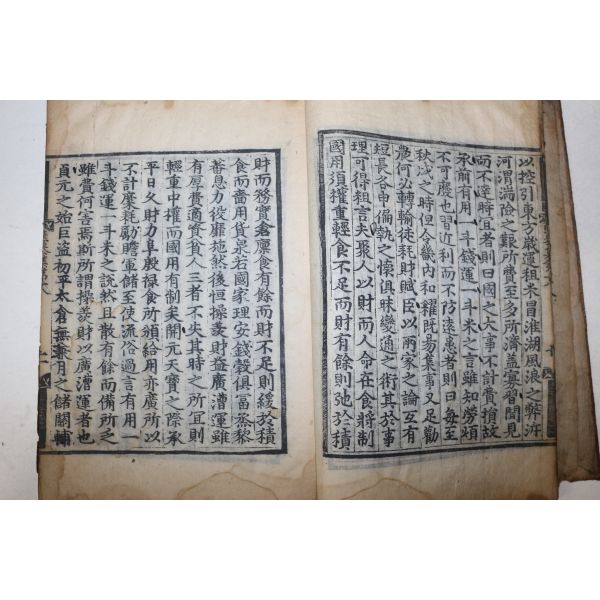 以控引東方歲運租米冒淮湖風浪之弊泝
河渭湍險之艱所費至多所濟蓋寡習聞見
而不達時宜者則曰國之大事不計費損故
承前有用一斗錢運一斗米之言雖知勞煩
不可廢也習近利而不防遠患者則曰每至
秋成之時但令畿內和糴既易集事又足勸
農何必轉輸徒耗財賦臣以兩家之論互有
短長各申偏執之懷俱昧變通之術其於事
理可得粗言夫聚人以財而人命在食將制
國用須權重輕食不足而財有餘則弛於積
財而務實倉廩食有餘而財不足則緩於積
食而嗇用貨泉若國家理安錢穀俱富烝黎
蕃息力役靡施然後恒操羨財益廣漕運雖
有厚費適資貧人三者不失其時之所宜則
輕重中權而國用有制矣開元天寶之際承
平日久財力阜殷祿食所頒給用亦廣所以
不計糜耗勵贍軍儲至使流俗過言有用一
斗錢運一斗米之說然且散有餘而備所乏
雖費何害焉斯所謂操羨財以廣漕運者也
貞元之始巨盜初平太倉無兼月之儲關輔